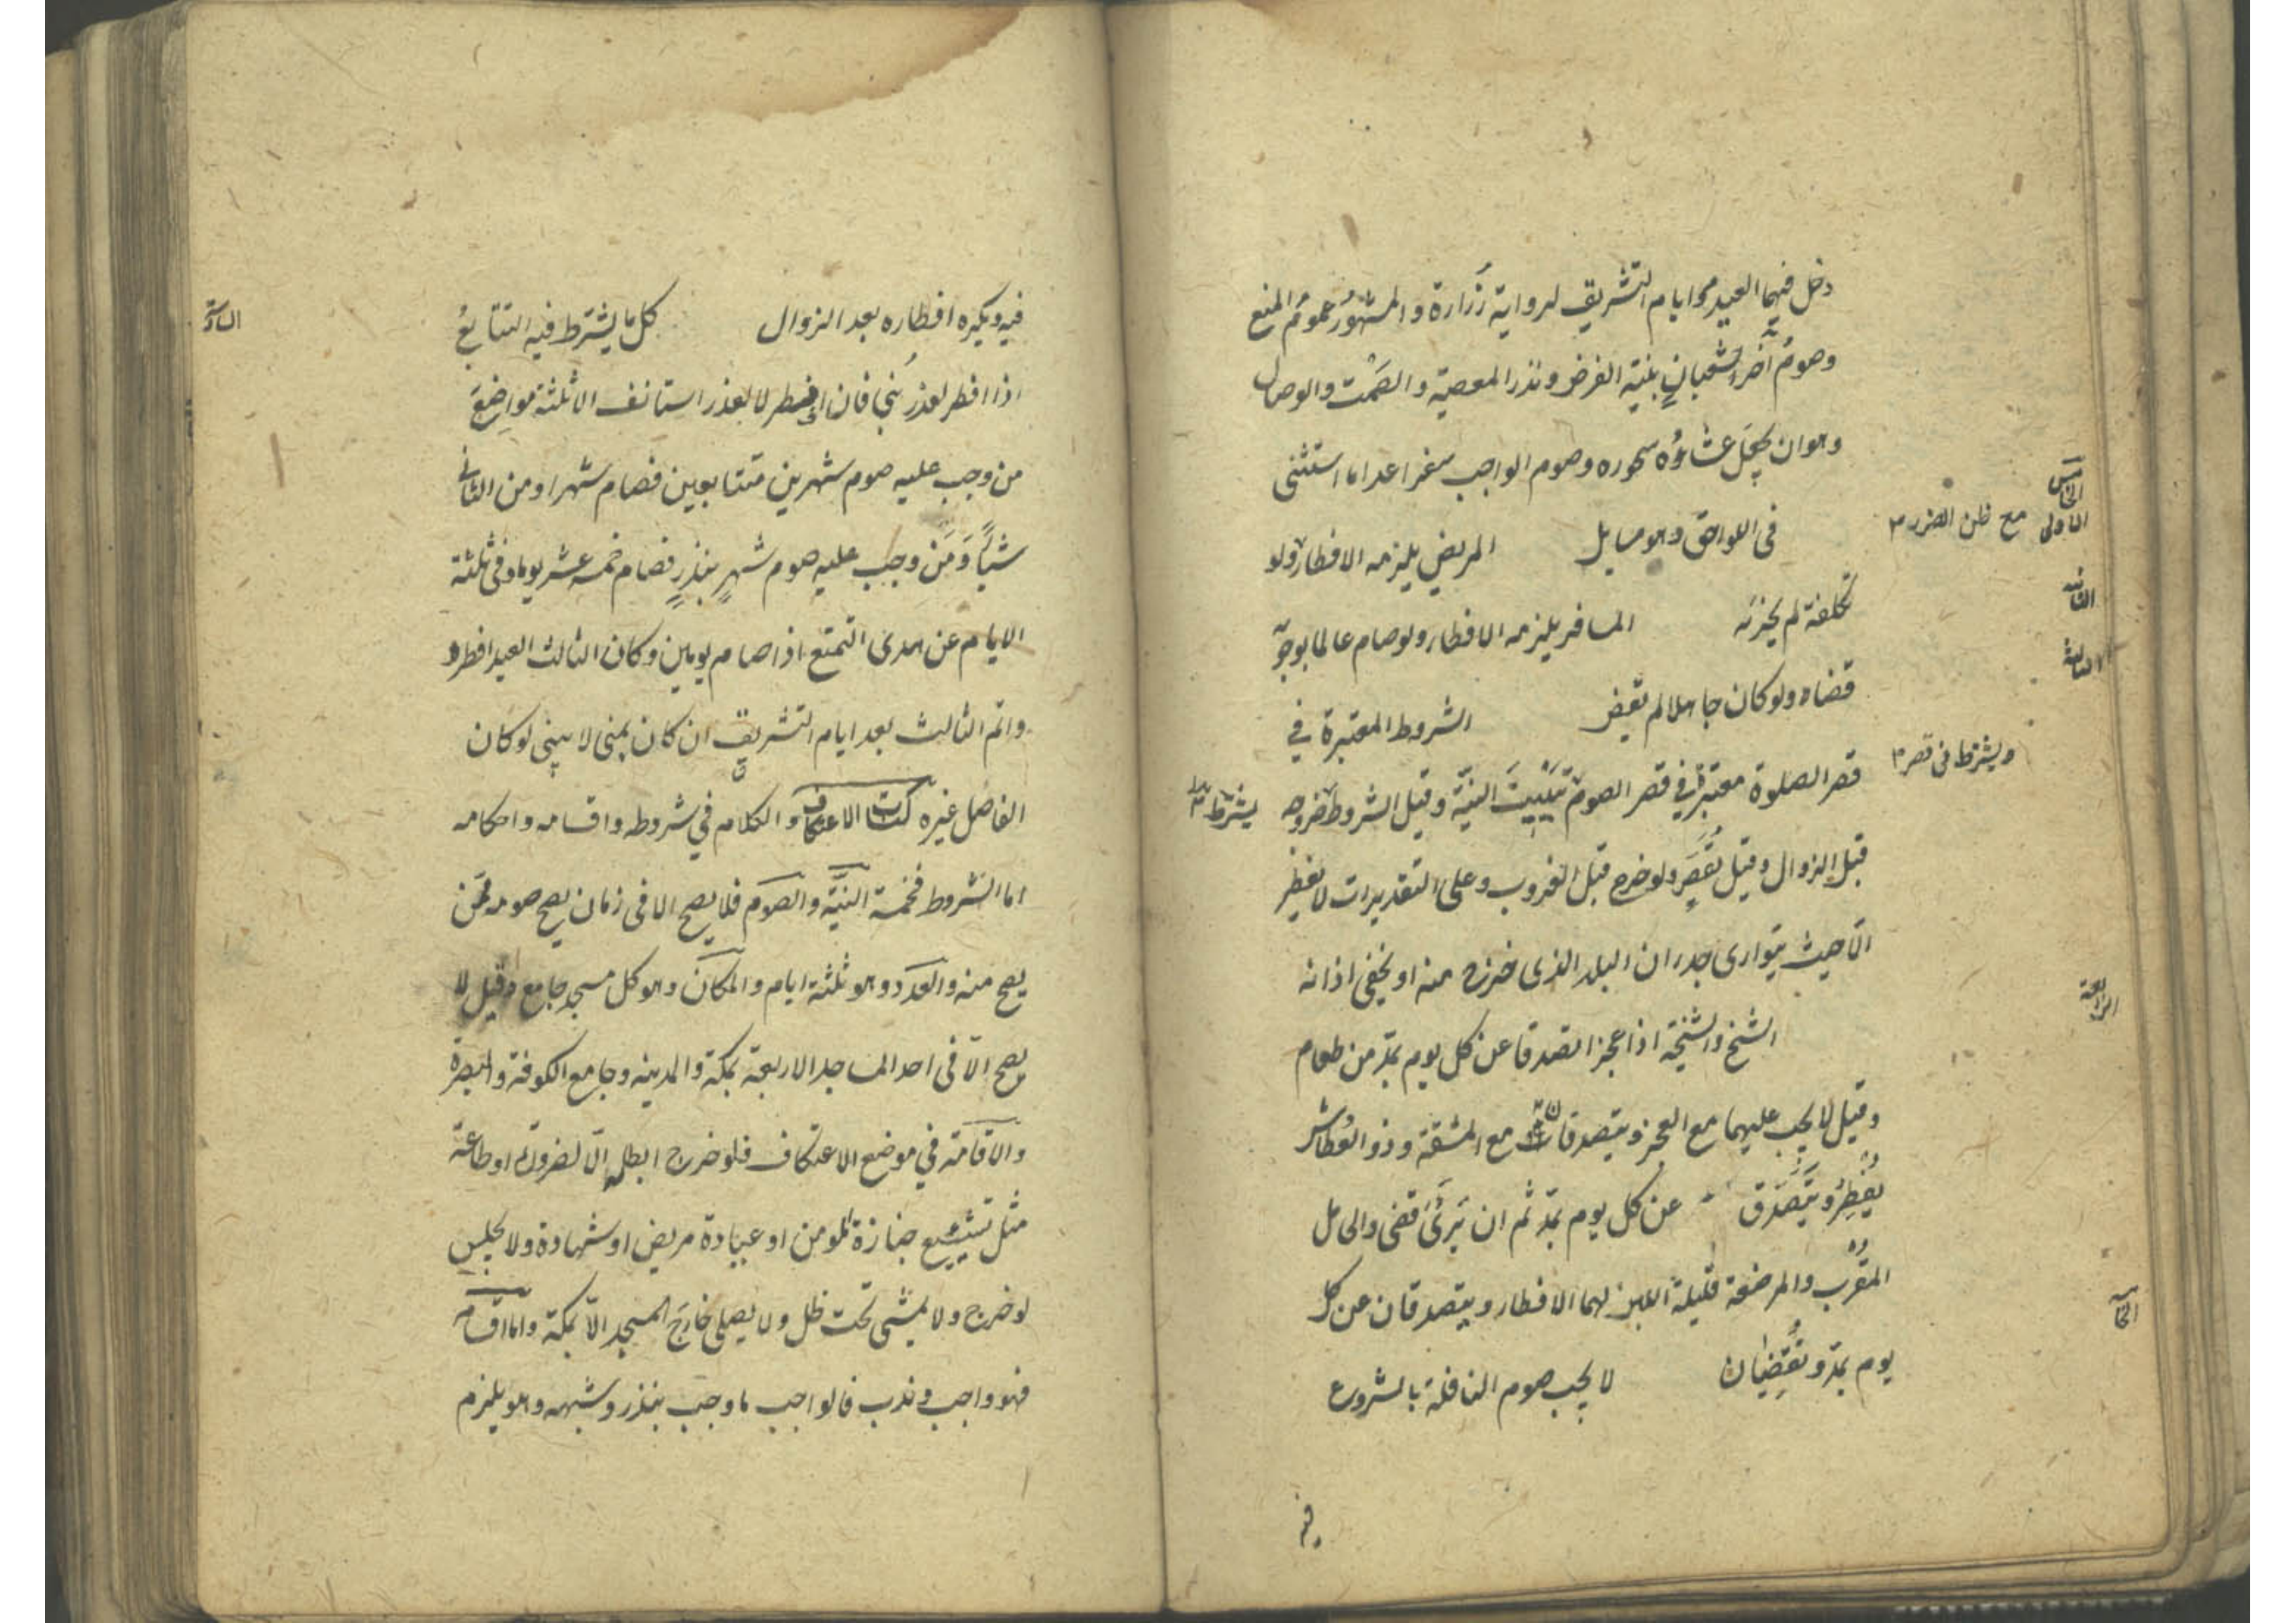 دخل فيهما العيد وايام التشريق لرواية زرارة والمشهور عموم المنع
وصوم آخر شعبان بنية الفرض ونذر المعصية والصمت والوصال
وهو ان يجعل عشاؤه سحوره وصوم الواجب سفرا عدا ما استثنى
الخامس
في اللواحق وهو مسايل المريض يلزمه الافطار ولو
الاولى
مع ظن الضرر
تكلفه لم يجزئه المسافر يلزمه الافطار ولو صام عالما بوجوبه
الثانية
قضاه ولو كان جاهلا لم يقض الشروط المعتبرة في
الثالثة
قصر الصلوة معتبرة في قصر الصوم تبييت النية وقيل الشروط خروجه
ويشترط في قصر
يشترط
قبل الزوال وقيل يقصر ولو خرج قبل الغروب وعلى التقديرات لا يفطر
الا حيث يتوارى جدران البلد الذي خرج منه او يخفى اذانه
الرابعة
الشيخ والشيخة اذا عجزا تصدقا عن كل يوم بمد من طعام
وقيل لا يجب عليهما مع العجز ويتصدقان مع المشقة وذو العطاش
يفطر ويتصدق عن كل يوم بمد ثم ان برئ قضى والحامل
المقرب والمرضعة قليلة اللبن لهما الافطار ويتصدقان عن كل
الخامسة
يوم بمد وتقضيان لا يجب صوم النافلة بالشروع
فيه
فيه ويكره افطاره بعد الزوال كل ما يشترط فيه التتابع
السادسة
اذا افطر لعذر بنى فان افطر لا لعذر استانف الا ثلثة مواضع
من وجب عليه صوم شهرين متتابعين فصام شهرا ومن الثاني
شيئا ومن وجب عليه صوم شهر بنذر فصام خمسة عشر يوما وفى ثلثة
الايام عن هدى التمتع اذا صام يومين وكان الثالث العيد افطر
واتم الثالث بعد ايام التشريق ان كان بمنى لا يبنى لو كان
الفاصل غيره كتاب الاعتكاف والكلام في شروطه واقسامه واحكامه
اما الشروط فخمسة النية والصوم فلا يصح الا فى زمان يصح صومه ممن
يصح منه والعدد وهو ثلثة ايام والمكان وهو كل مسجد جامع وقيل لا
يصح الا فى احد المساجد الاربعة بمكة والمدينه وجامع الكوفة والبصرة
والاقامة في موضع الاعتكاف فلو خرج ابطله الا لضرورة او طاعة
مثل تشييع جنازة المومن او عيادة مريض او شهادة ولا يجلس
لو خرج ولا يمشى تحت ظل ولا يصلى خارج المسجد الا بمكة واما اقسامه
فهو واجب وندب فالواجب ما وجب بنذر وشبهه وهو يلزم